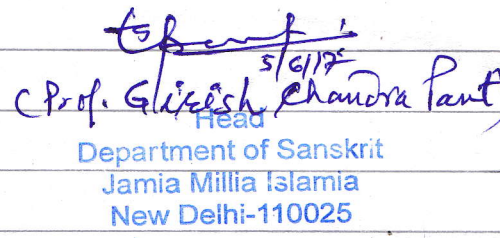 5/6/17
(Prof. Girish Chandra Pant)
Head
Department of Sanskrit
Jamia Millia Islamia
New Delhi-110025